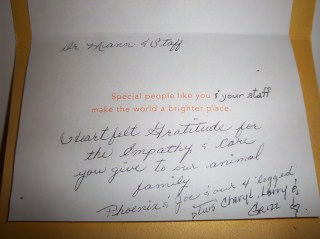 Dr Mann & Staff
Special people like you & your staff
make the world a brighter place.
Heartfelt Gratitude for
the Empathy & Care
you give to our animal
family
Phoenix & Joe & our 4 legged.
plus Cheryl, Larry &